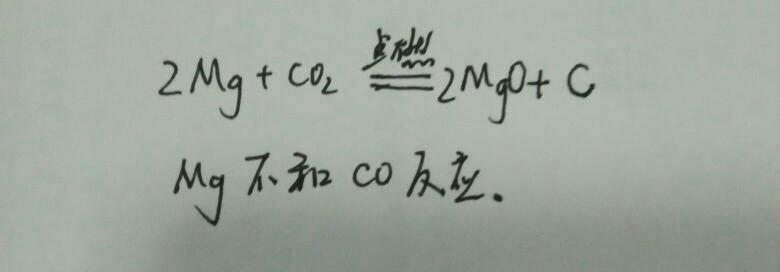 2Mg + CO₂ 点燃 2MgO + C
Mg 不和 CO 反应.